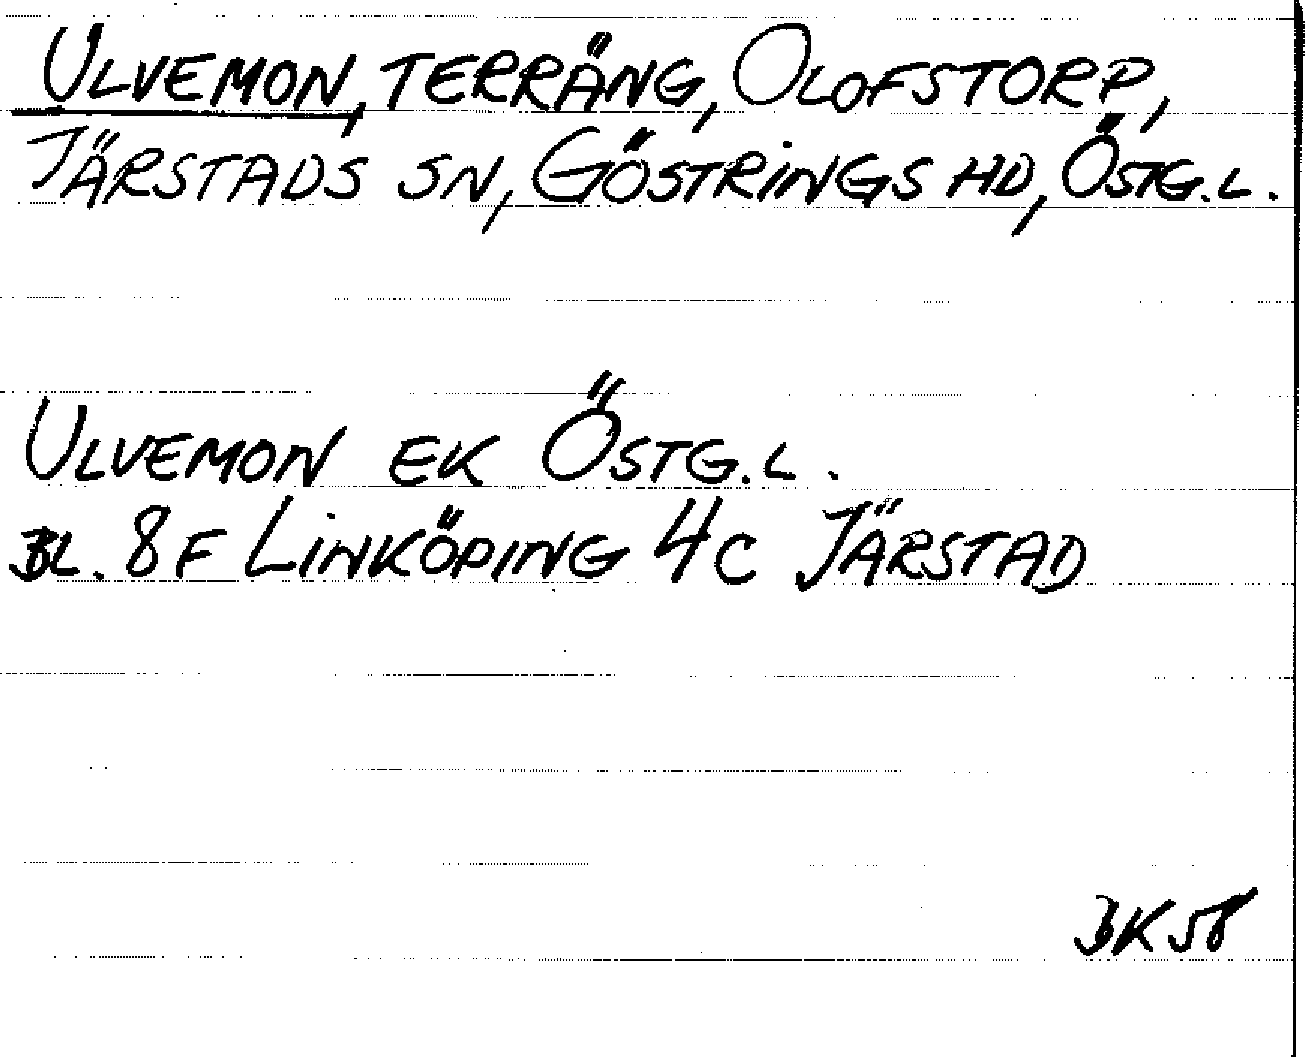 ULVEMON, TERRÄNG, OLOFSTORP,
JÄRSTADS SN, GÖSTRINGS HD, ÖSTG.L.
ULVEMON EK ÖSTG.L.
BL. 8F LINKÖPING 4C JÄRSTAD
BK58